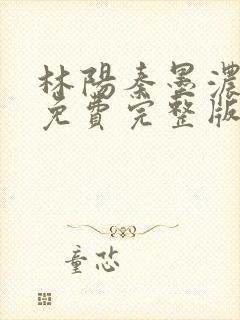 林陽秦墨濃
免費完整版
童恐